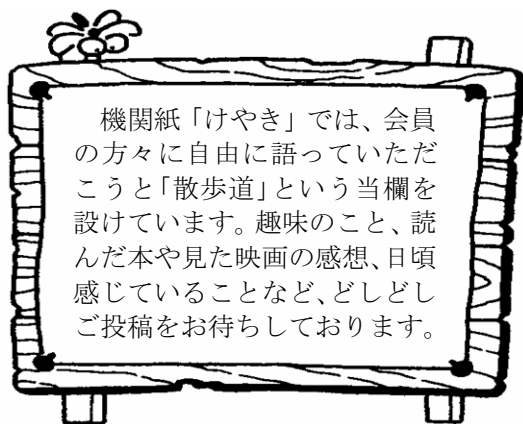 機関紙「けやき」では、会員
の方々に自由に語っていただ
こうと「散歩道」という当欄を
設けています。趣味のこと、読
んだ本や見た映画の感想、日頃
感じていることなど、どしどし
ご投稿をお待ちしております。